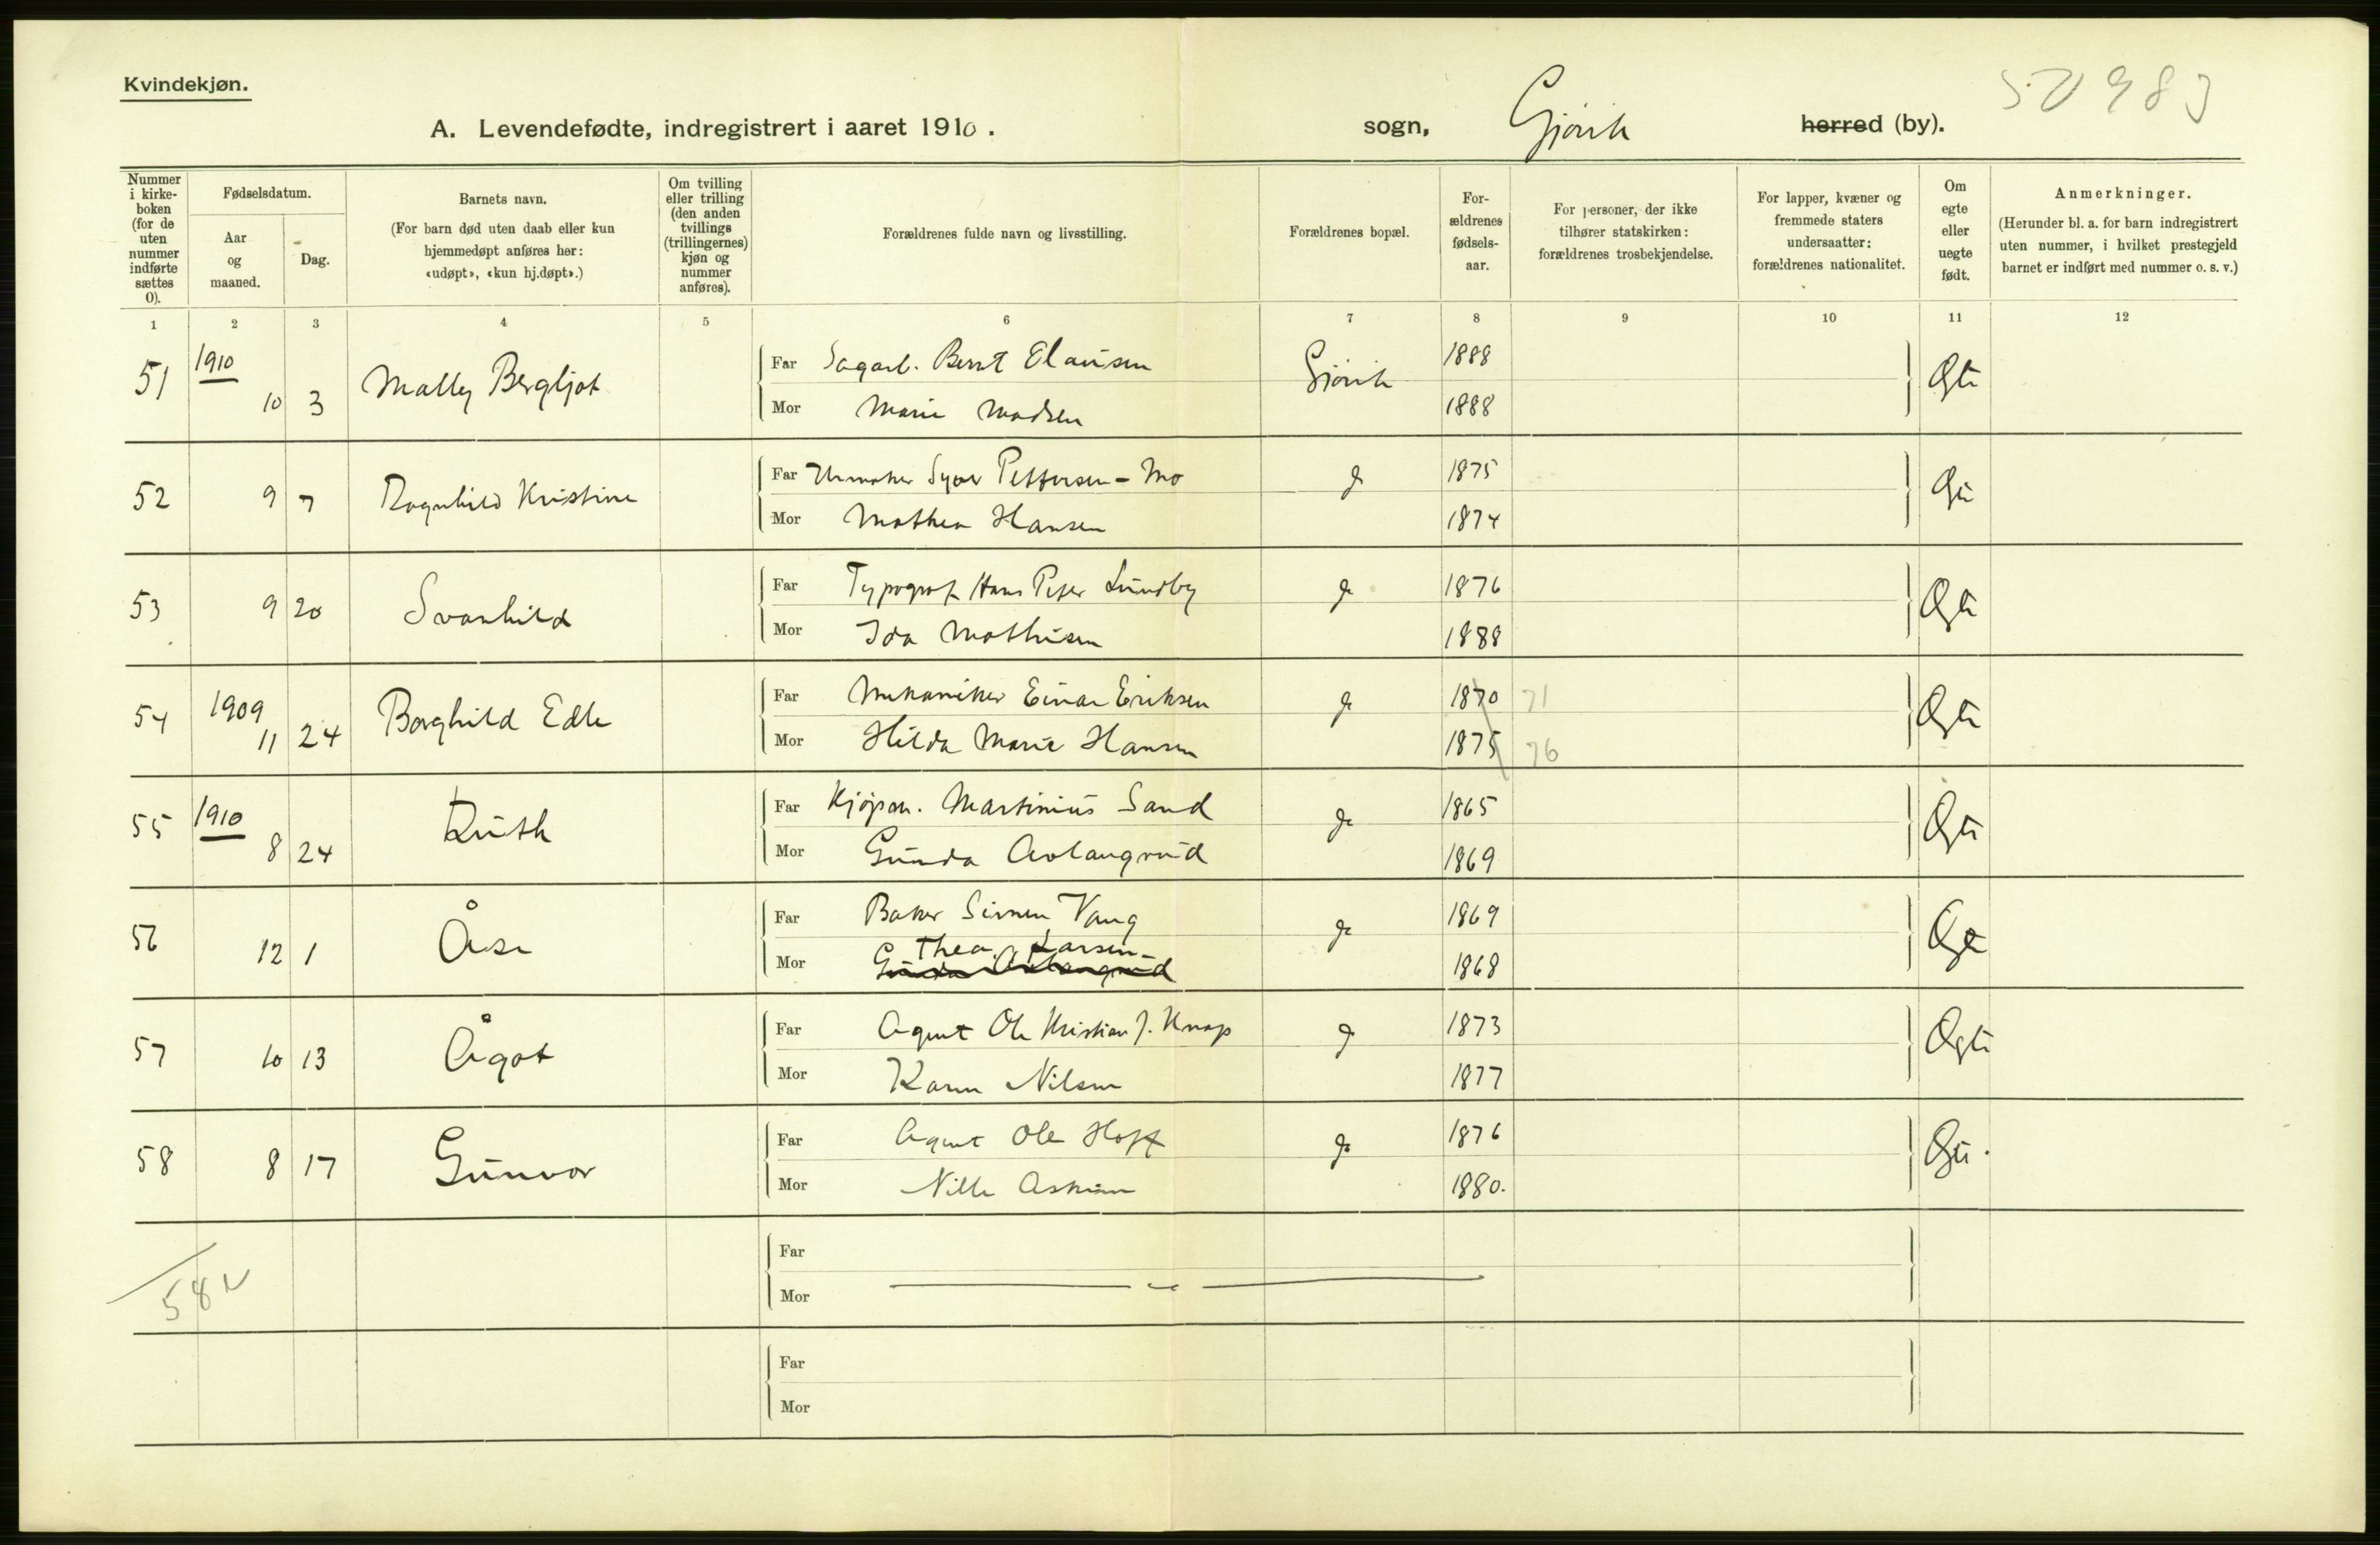 Kvindekjøn.
A. Levendefødte, indregistrert i aaret 1910.
sogn, Gjövik herred (by).
Nummer i kirke-boken (for de uten nummer indførte sættes 0).
Fødselsdatum.
Aar og maaned.
Dag.
Barnets navn.
(For barn død uten daab eller kun hjemmedøpt anføres her: «udøpt», «kun hj.døpt».)
Om tvilling eller trilling (den anden tvillings (trillingernes) kjøn og nummer anføres).
Forældrenes fulde navn og livsstilling.
Forældrenes bopæl.
For-ældrenes fødsels-aar.
For personer, der ikke tilhører statskirken: forældrenes trosbekjendelse.
For lapper, kvæner og fremmede staters undersaatter: forældrenes nationalitet.
Om egte eller uegte født.
Anmerkninger.
(Herunder bl. a. for barn indregistrert uten nummer, i hvilket prestegjeld barnet er indført med nummer o. s. v.)
1 2 3 4 5 6 7 8 9 10 11 12
51 1910 10 3 Mally Bergljot Far Sagarb. Bernt Claussen Gjövik 1888 Ægte
Mor Marie Madsen 1888
52 9 7 Ragnhild Kristine Far Urmaker Syver Pettersen - Mo 1875
Mor Mathea Hansen 1874
53 9 20 Svanhild Far Typograf Hans Peter Lundby 1876 Ægte
Mor Ida Mathisen 1888
54 1909 11 24 Borghild Edle Far Mekaniker Einar Eriksen 1870 71 Ægte
Mor Hilda Marie Hansen 1875 76
55 1910 8 24 Ruth Far Kjøpm. Martinius Sand 1865 Ægte
Mor Gunda Avlangrud 1869
56 12 1 Åse Far Baker Simen Vang 1869 Ægte
Mor Thea Larsen
Gunda Avlangrud 1868
57 10 13 Ågot Far Agent Ole Kristian J. Knap 1873 Ægte
Mor Karen Nilsen 1877
58 8 17 Gunvor Far Agent Ole Hoff 1876
Mor Nille Askim 1880.
58
Far
Mor
Far
Mor